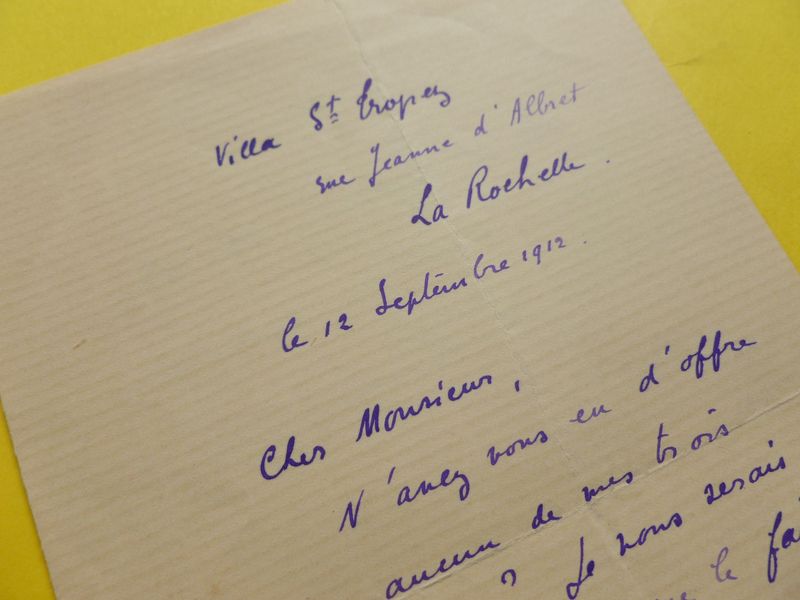 Villa St Tropez
rue Jeanne d'Albret
La Rochelle.
le 12 Septembre 1912.
Cher Monsieur,
N'avez vous eu d'offre
aucun de mes trois
? Je vous serais
le fai